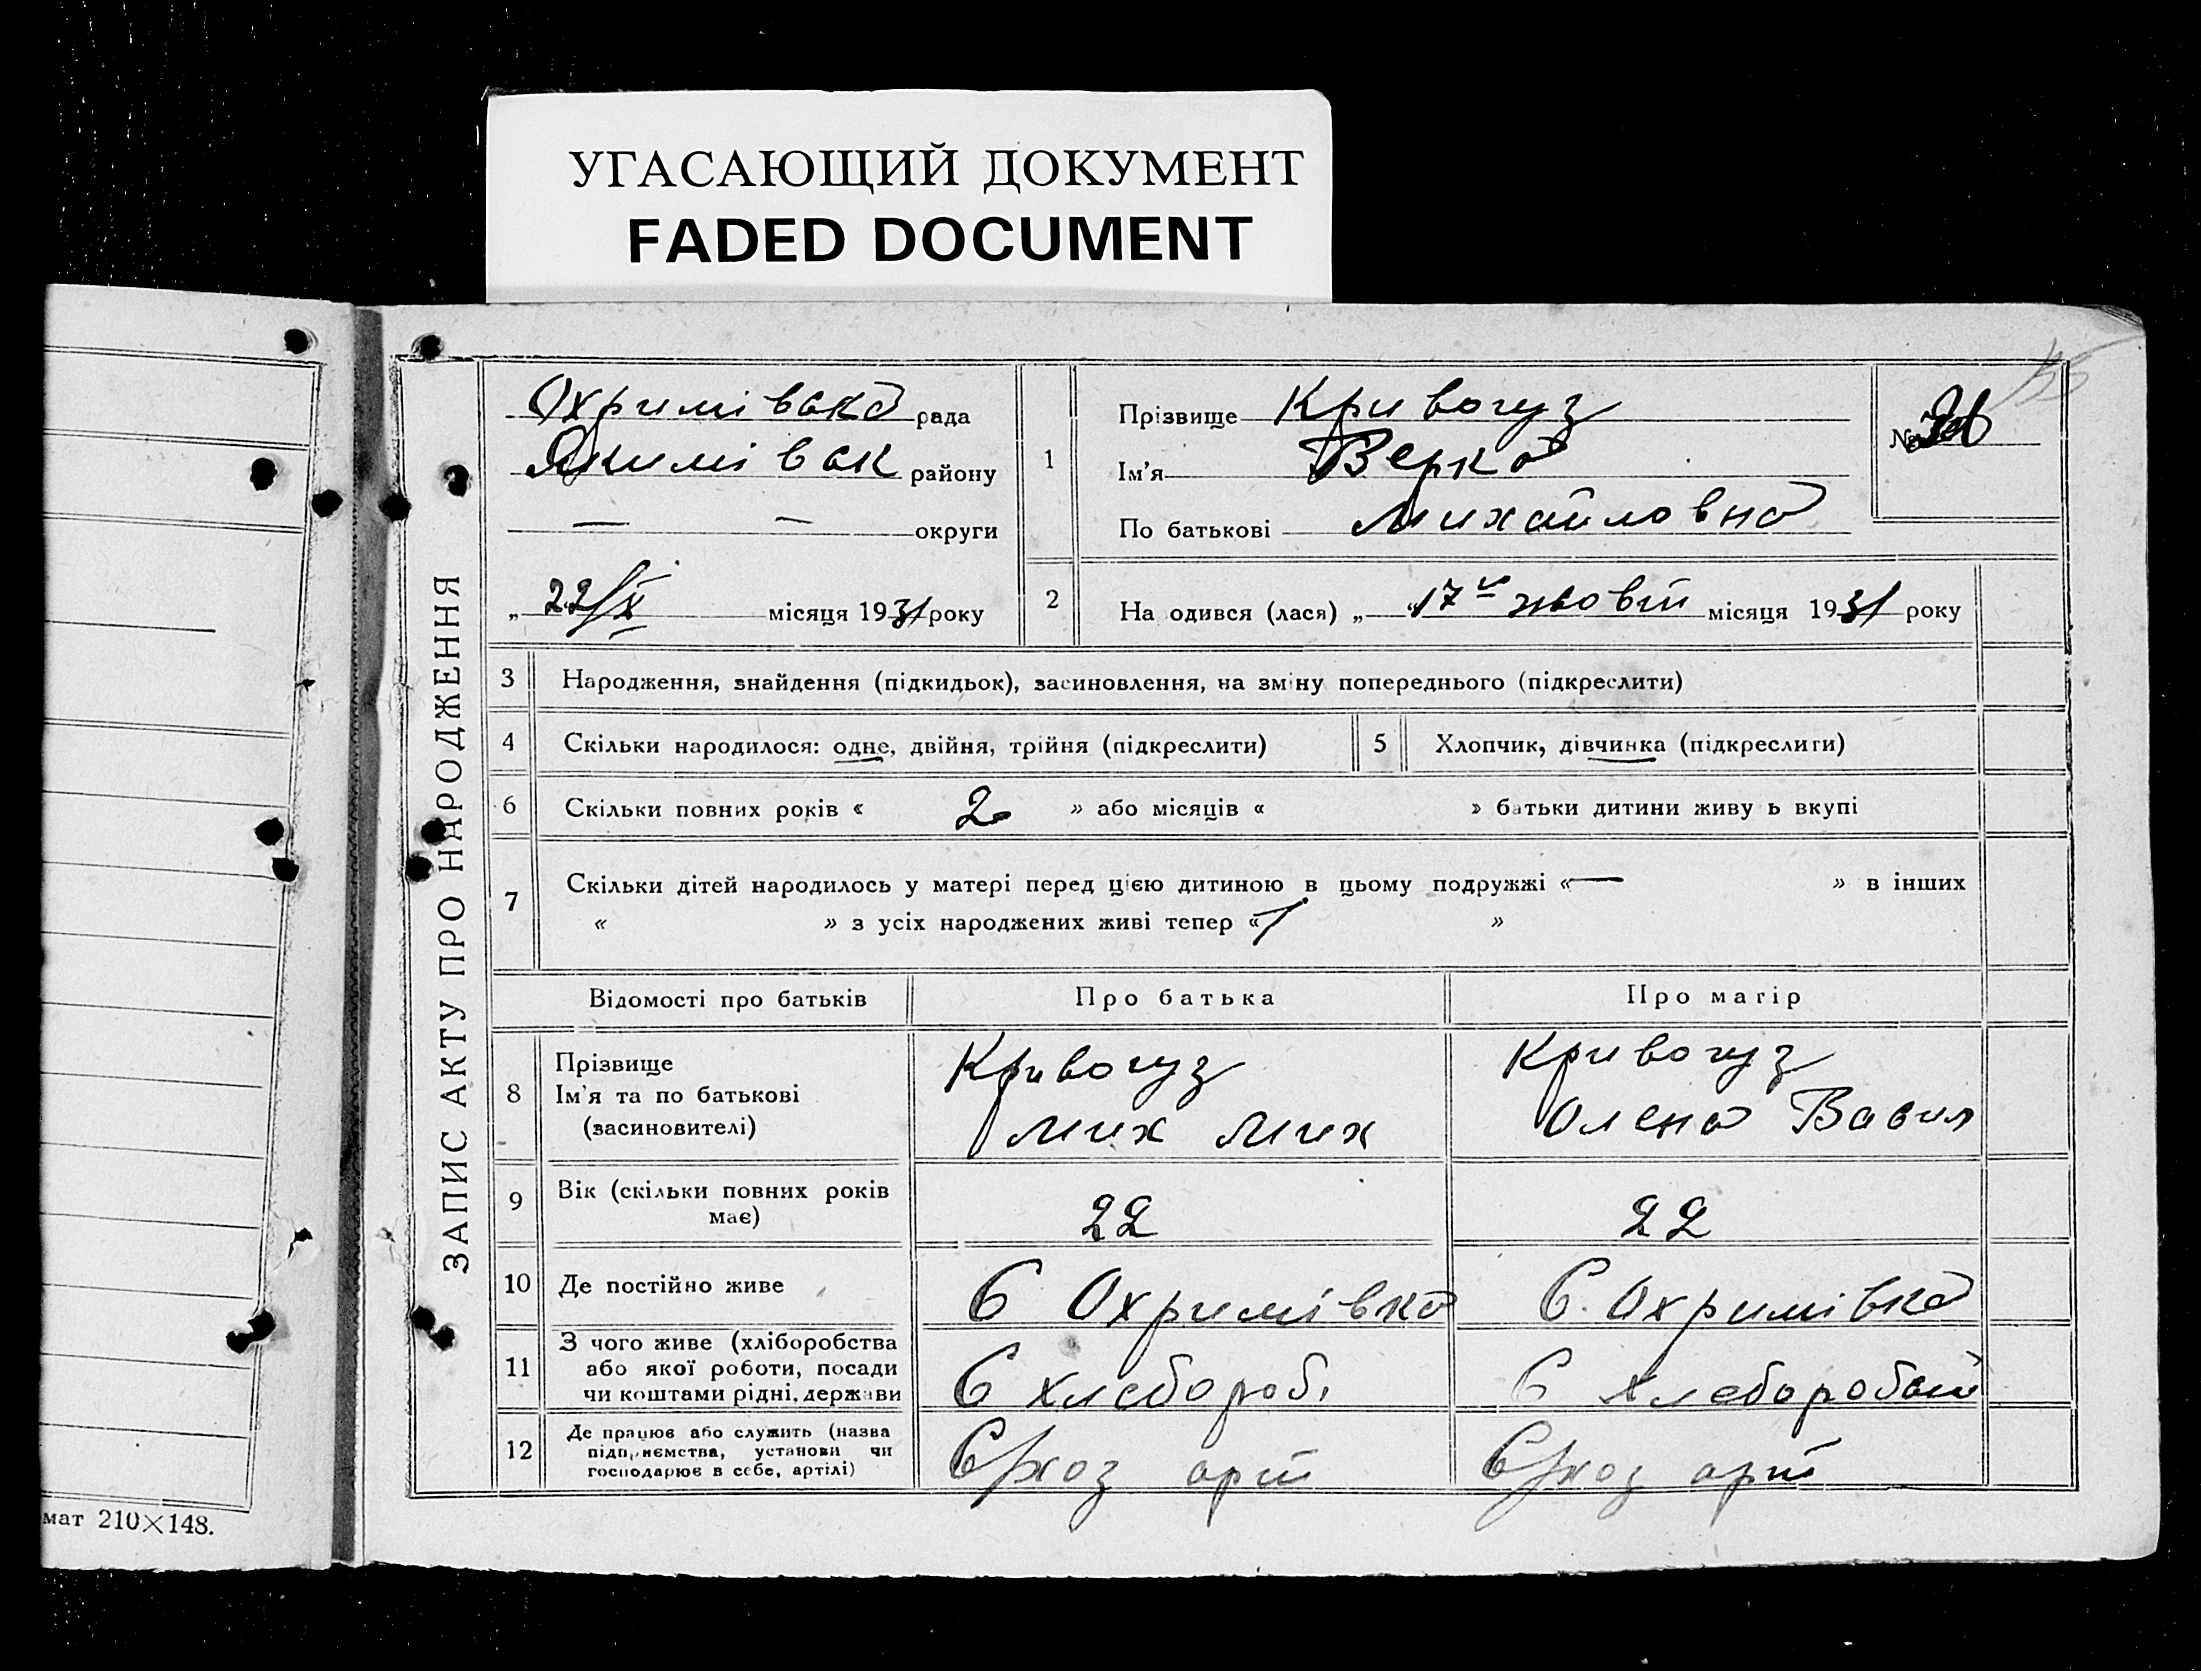 УГАСАЮЩИЙ ДОКУМЕНТ
FADED DOCUMENT
ЗАПИС АКТУ ПРО НАРОДЖЕННЯ
Охримівська рада
Якимівськ району
— — округи
„ 22/X місяця 1931 року
1
Прізвище Кривогуз
Ім'я Верка
По батькові Михайловна
№
2
На одився (лася) „ 17го жовт місяця 1931 року
3 Народження, знайдення (підкидьок), засиновлення, на зміну попереднього (підкреслити)
4 Скільки народилося: одне, двійня, трійня (підкреслити) 5 Хлопчик, дівчинка (підкреслити)
6 Скільки повних років « 2 » або місяців « » батьки дитини живу ь вкупі
7 Скільки дітей народилось у матері перед цією дитиною в цьому подружжі « — » в інших
« » з усіх народжених живі тепер « 1 »
Відомості про батьків Про батька Про матір
8 Прізвище
Ім'я та по батькові
(засиновителі)
Кривогуз
Мих Мих
Кривогуз
Олена Вавил
9 Вік (скільки повних років
має)
22
22
10 Де постійно живе С Охримівка С. Охримівка
11 З чого живе (хліборобства
або якої роботи, посади
чи коштами рідні, держави
С хлебороб. С хлеборобст
12 Де працює або служить (назва
підприємства, установи чи
господарює в себе, артілі)
С/хоз арт С/хоз арт
мат 210×148.